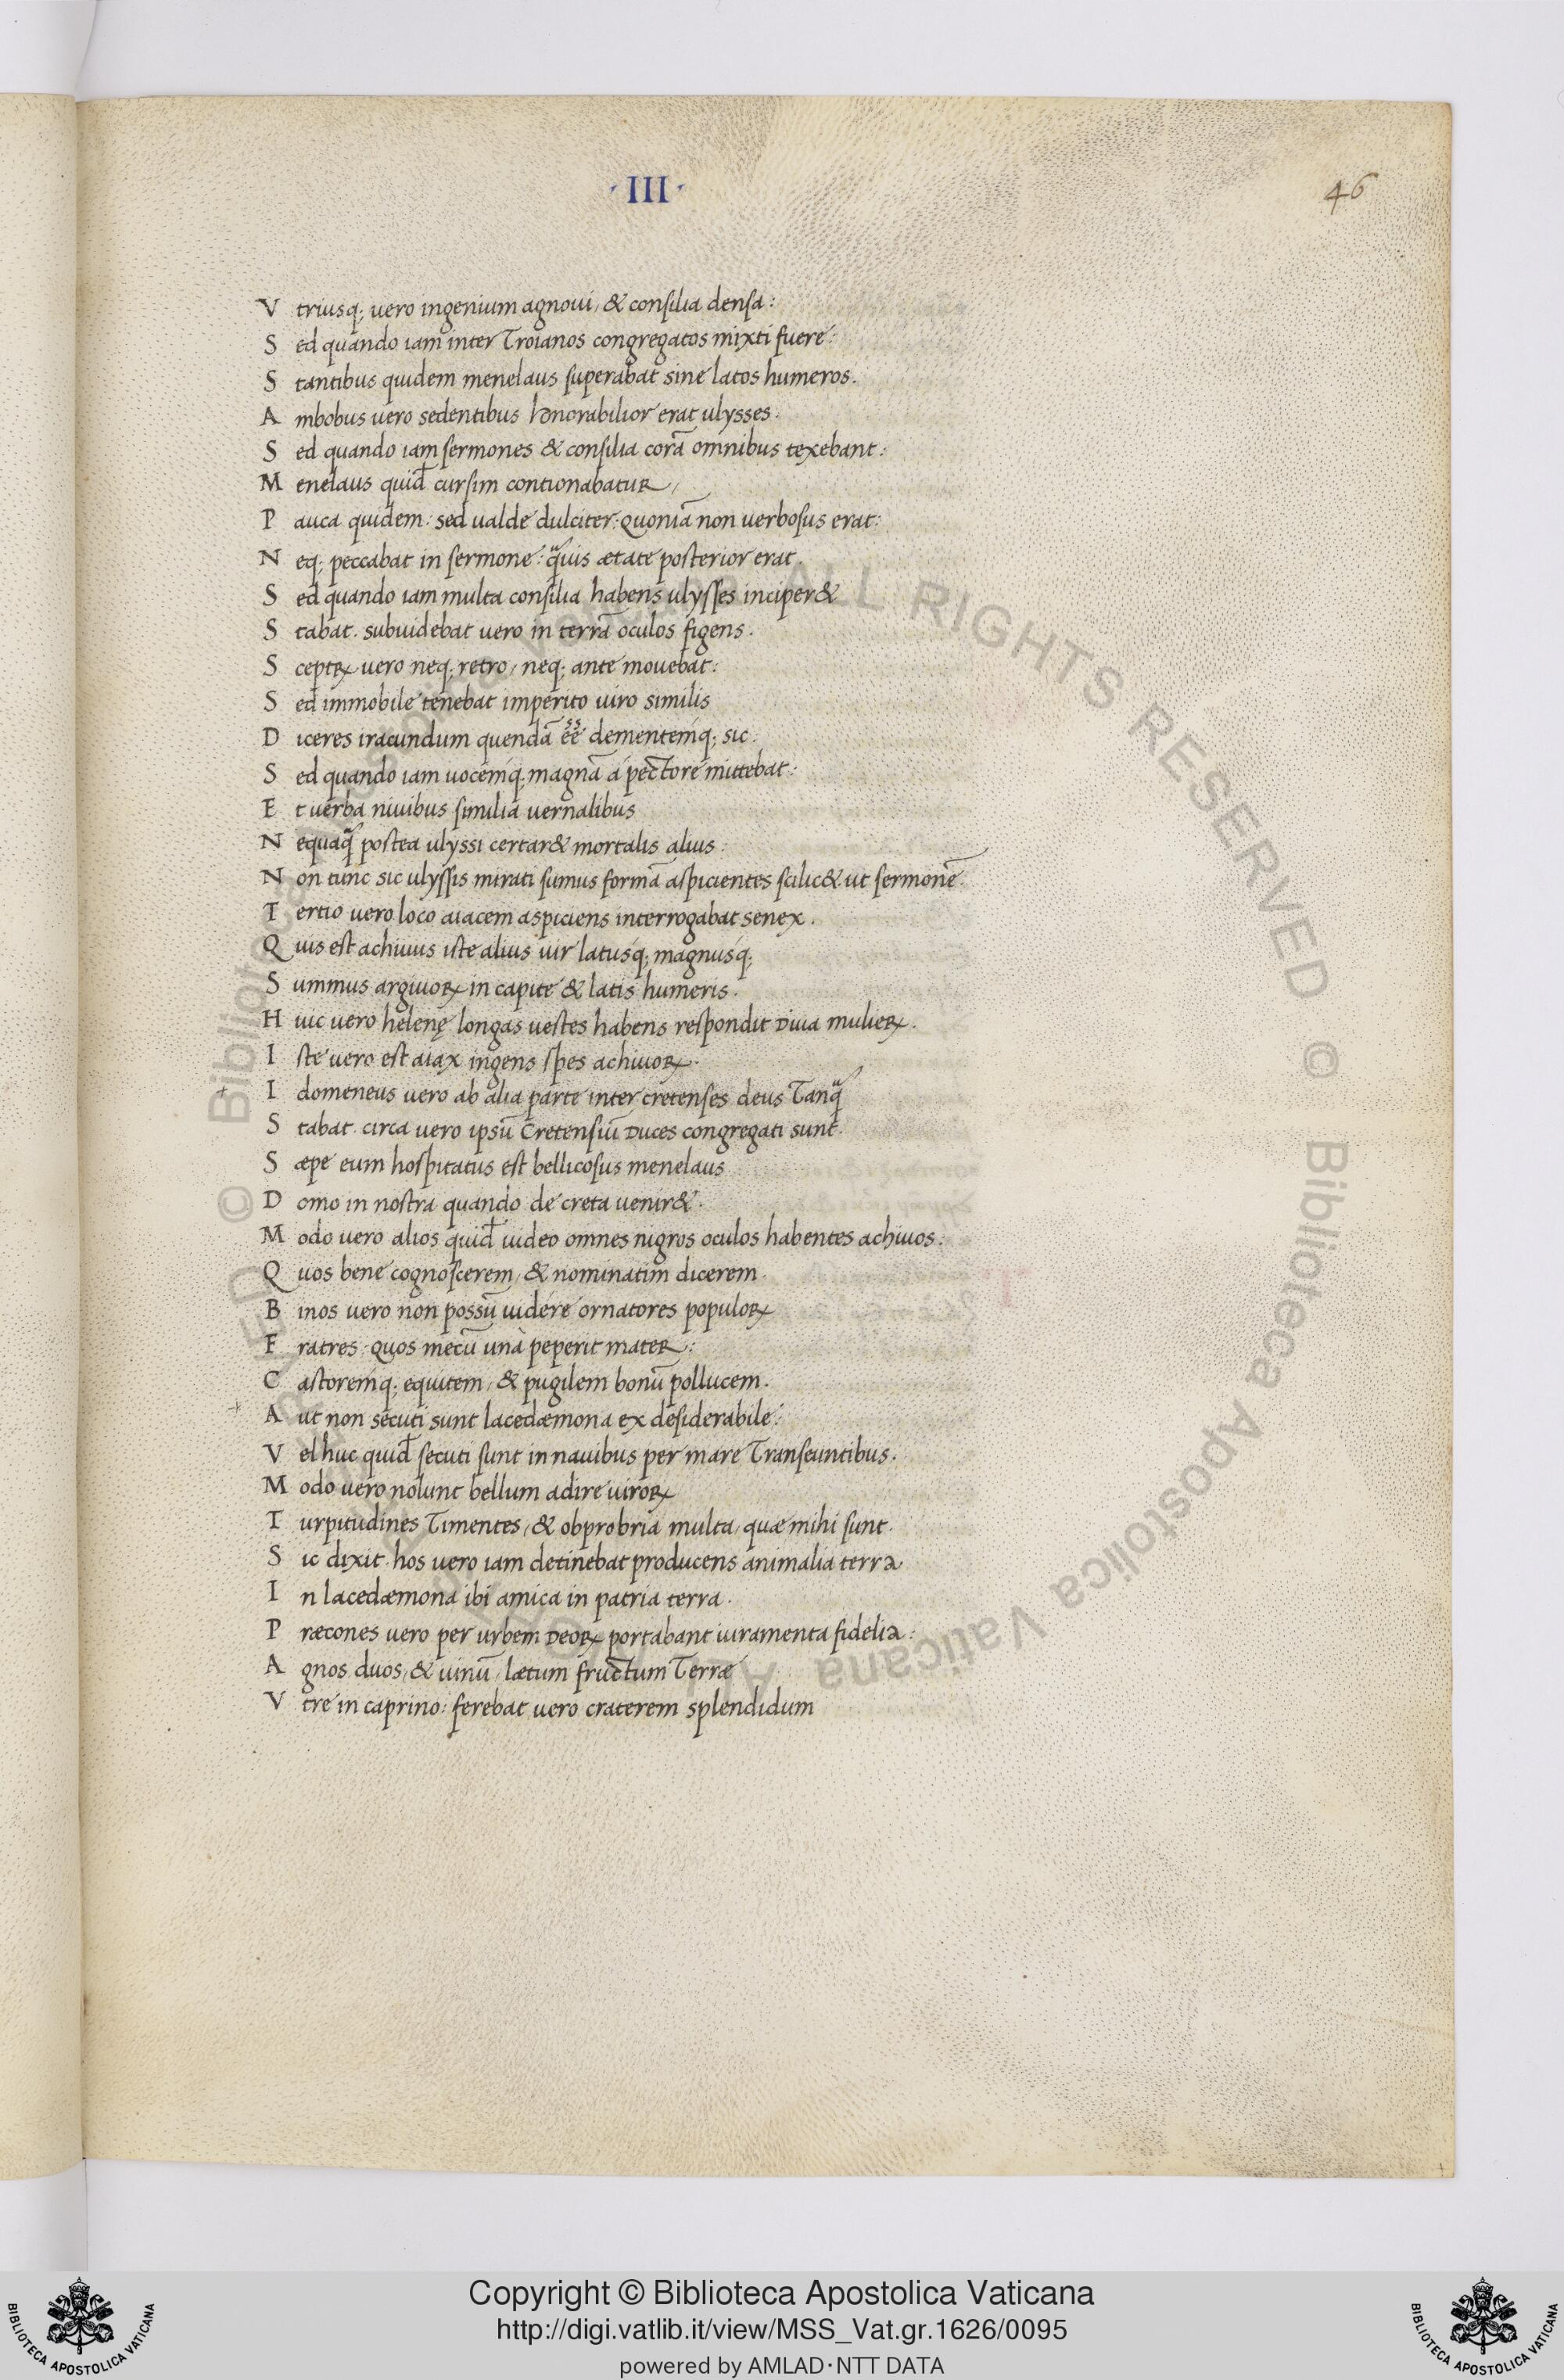 · III ·
46
V triusq; uero ingenium agnoui, & consilia densa:
S ed quando iam inter Troianos congregatos mixti fuere:
S tantibus quidem menelaus superabat sine latos humeros.
A mbobus uero sedentibus honorabilior erat ulysses.
S ed quando iam sermones & consilia corā omnibus texebant:
M enelaus quid̄ cursim contionabatur,
P auca quidem: sed ualde dulciter: quoniā non uerbosus erat:
N eq; peccabat in sermone: q̄uis ætate posterior erat.
S ed quando iam multa consilia habens ulysses inciper&
S tabat. subuidebat uero in terrā oculos figens.
S ceptꝝ uero neq; retro, neq; ante mouebat:
S ed immobile tenebat imperito uiro similis
D iceres iracundum quendā ēē dementemq; sic:
S ed quando iam uocemq; magnā a pectore mittebat:
E t uerba niuibus similia uernalibus
N equaq̄ postea ulyssi certar& mortalis alius:
N on tunc sic ulyssis mirati sumus formā aspicientes scilic& ut sermonē.
T ertio uero loco aiacem aspiciens interrogabat senex.
Q uis est achiuus iste alius uir latusq; magnusq;
S ummus argiuoꝝ in capite & latis humeris.
H uic uero helenę longas uestes habens respondit diua mulieꝝ.
I ste uero est aiax ingens spes achiuoꝝ.
I domeneus uero ab alia parte inter cretenses deus Tanq̄
S tabat. circa uero ipsū Cretensiū duces congregati sunt.
S æpe eum hospitatus est bellicosus menelaus
D omo in nostra quando de creta uenir&.
M odo uero alios quid̄ uideo omnes nigros oculos habentes achiuos:
Q uos bene cognoscerem, & nominatim dicerem.
B inos uero non possū uidere ornatores populoꝝ
F ratres: quos mecū unà peperit mater:
C astoremq; equitem, & pugilem bonū pollucem.
A ut non secuti sunt lacedæmona ex desiderabile:
V el huc quid̄ secuti sunt in nauibus per mare Transeuntibus.
M odo uero nolunt bellum adire uiroꝝ
T urpitudines Timentes, & obprobria multa, quæ mihi sunt.
S ic dixit. hos uero iam detinebat producens animalia terra
I n lacedæmona ibi amica in patria terra.
P ræcones uero per urbem deoꝝ portabant iuramenta fidelia:
A gnos duos, & uinū, lætum fructum Terræ
V tre in caprino: ferebat uero craterem splendidum
Copyright © Biblioteca Apostolica Vaticana
http://digi.vatlib.it/view/MSS_Vat.gr.1626/0095
powered by AMLAD·NTT DATA